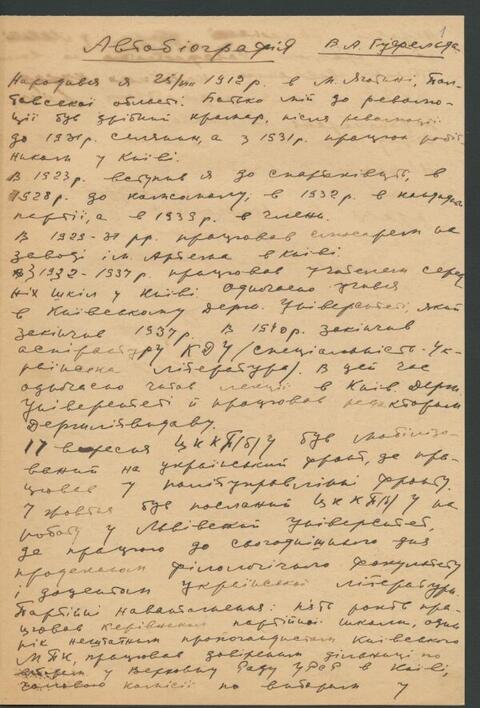 1
Автобіографія В. А. Гуфельда
Народився я 25/VIII 1912 р. в м. Яготині, Пол-
тавської області. Батько мій до револю-
ції був дрібний крамар, після революції
до 1931 р. селянин, а з 1931 р. працює робіт-
ником у Києві.
В 1923 р. вступив я до спартаківців, в
1928 р. до комсомолу, в 1932 р. в кандидати
партії, а в 1939 р. в члени.
В 1929-31 рр. працював слюсарем на
заводі ім. Артема в Києві.
З 1932-1937 р. працював учителем серед-
ніх шкіл у Києві одночасно учився
в Київському Держ. Університеті, який
закінчив 1937 р. В 1940 р. закінчив
аспірантуру КДУ /спеціальність-Ук-
раїнська література/. В цей час
одночасно читав лекції в Київ. Держ.
Університеті й працював редактором
Держлітвидаву.
17 вересня ЦК КП/б/У був мобілізо-
ваний на український фронт, де пра-
цював у політуправлінні фронту.
У жовтні був посланий ЦК КП/б/У на
роботу у Львівський Університет,
де працюю до сьогоднішнього дня
продеканом філологічного факультету
і доцентом української літератури.
Партійні навантаження: п'ять років пра-
цював керівником партійної школи, один
рік нештатним пропагандистом Київського
МПК, працював довіреним дільниці по
виборам у Верховну Раду УРСР в Києві,
головою комісії по виборам у